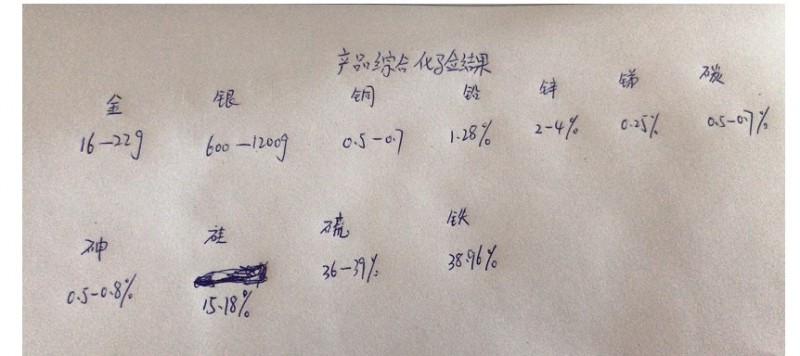 产品综合化验结果
金 银 铜 铅 锌 锑 碳
16-22g 600-1200g 0.5-0.7 1.28% 2-4% 0.25% 0.5-0.7%
砷 硅 硫 铁
0.5-0.8% 15.18% 36-39% 38.96%